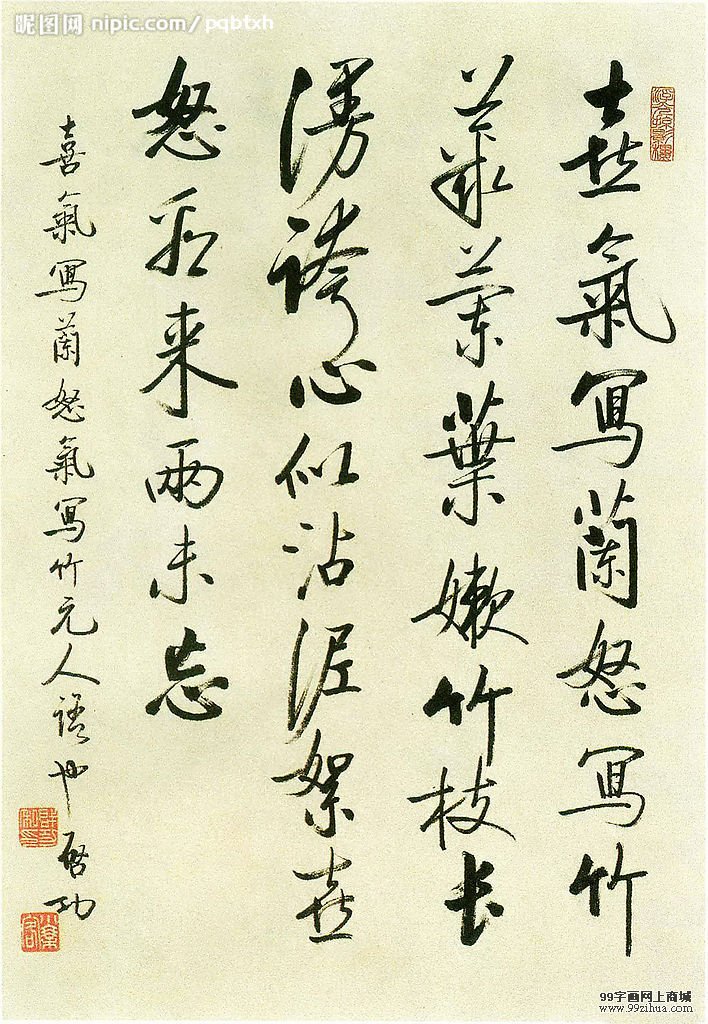 昵图网 nipic.com/pqbtxh
喜氣寫蘭怒寫竹
叢蘭葉嫩竹枝长
漫誇心似沾泥絮喜
怒看来兩未忘
喜氣寫蘭怒氣寫竹元人語也 啓功
99字画网上商城
www.99zihua.com